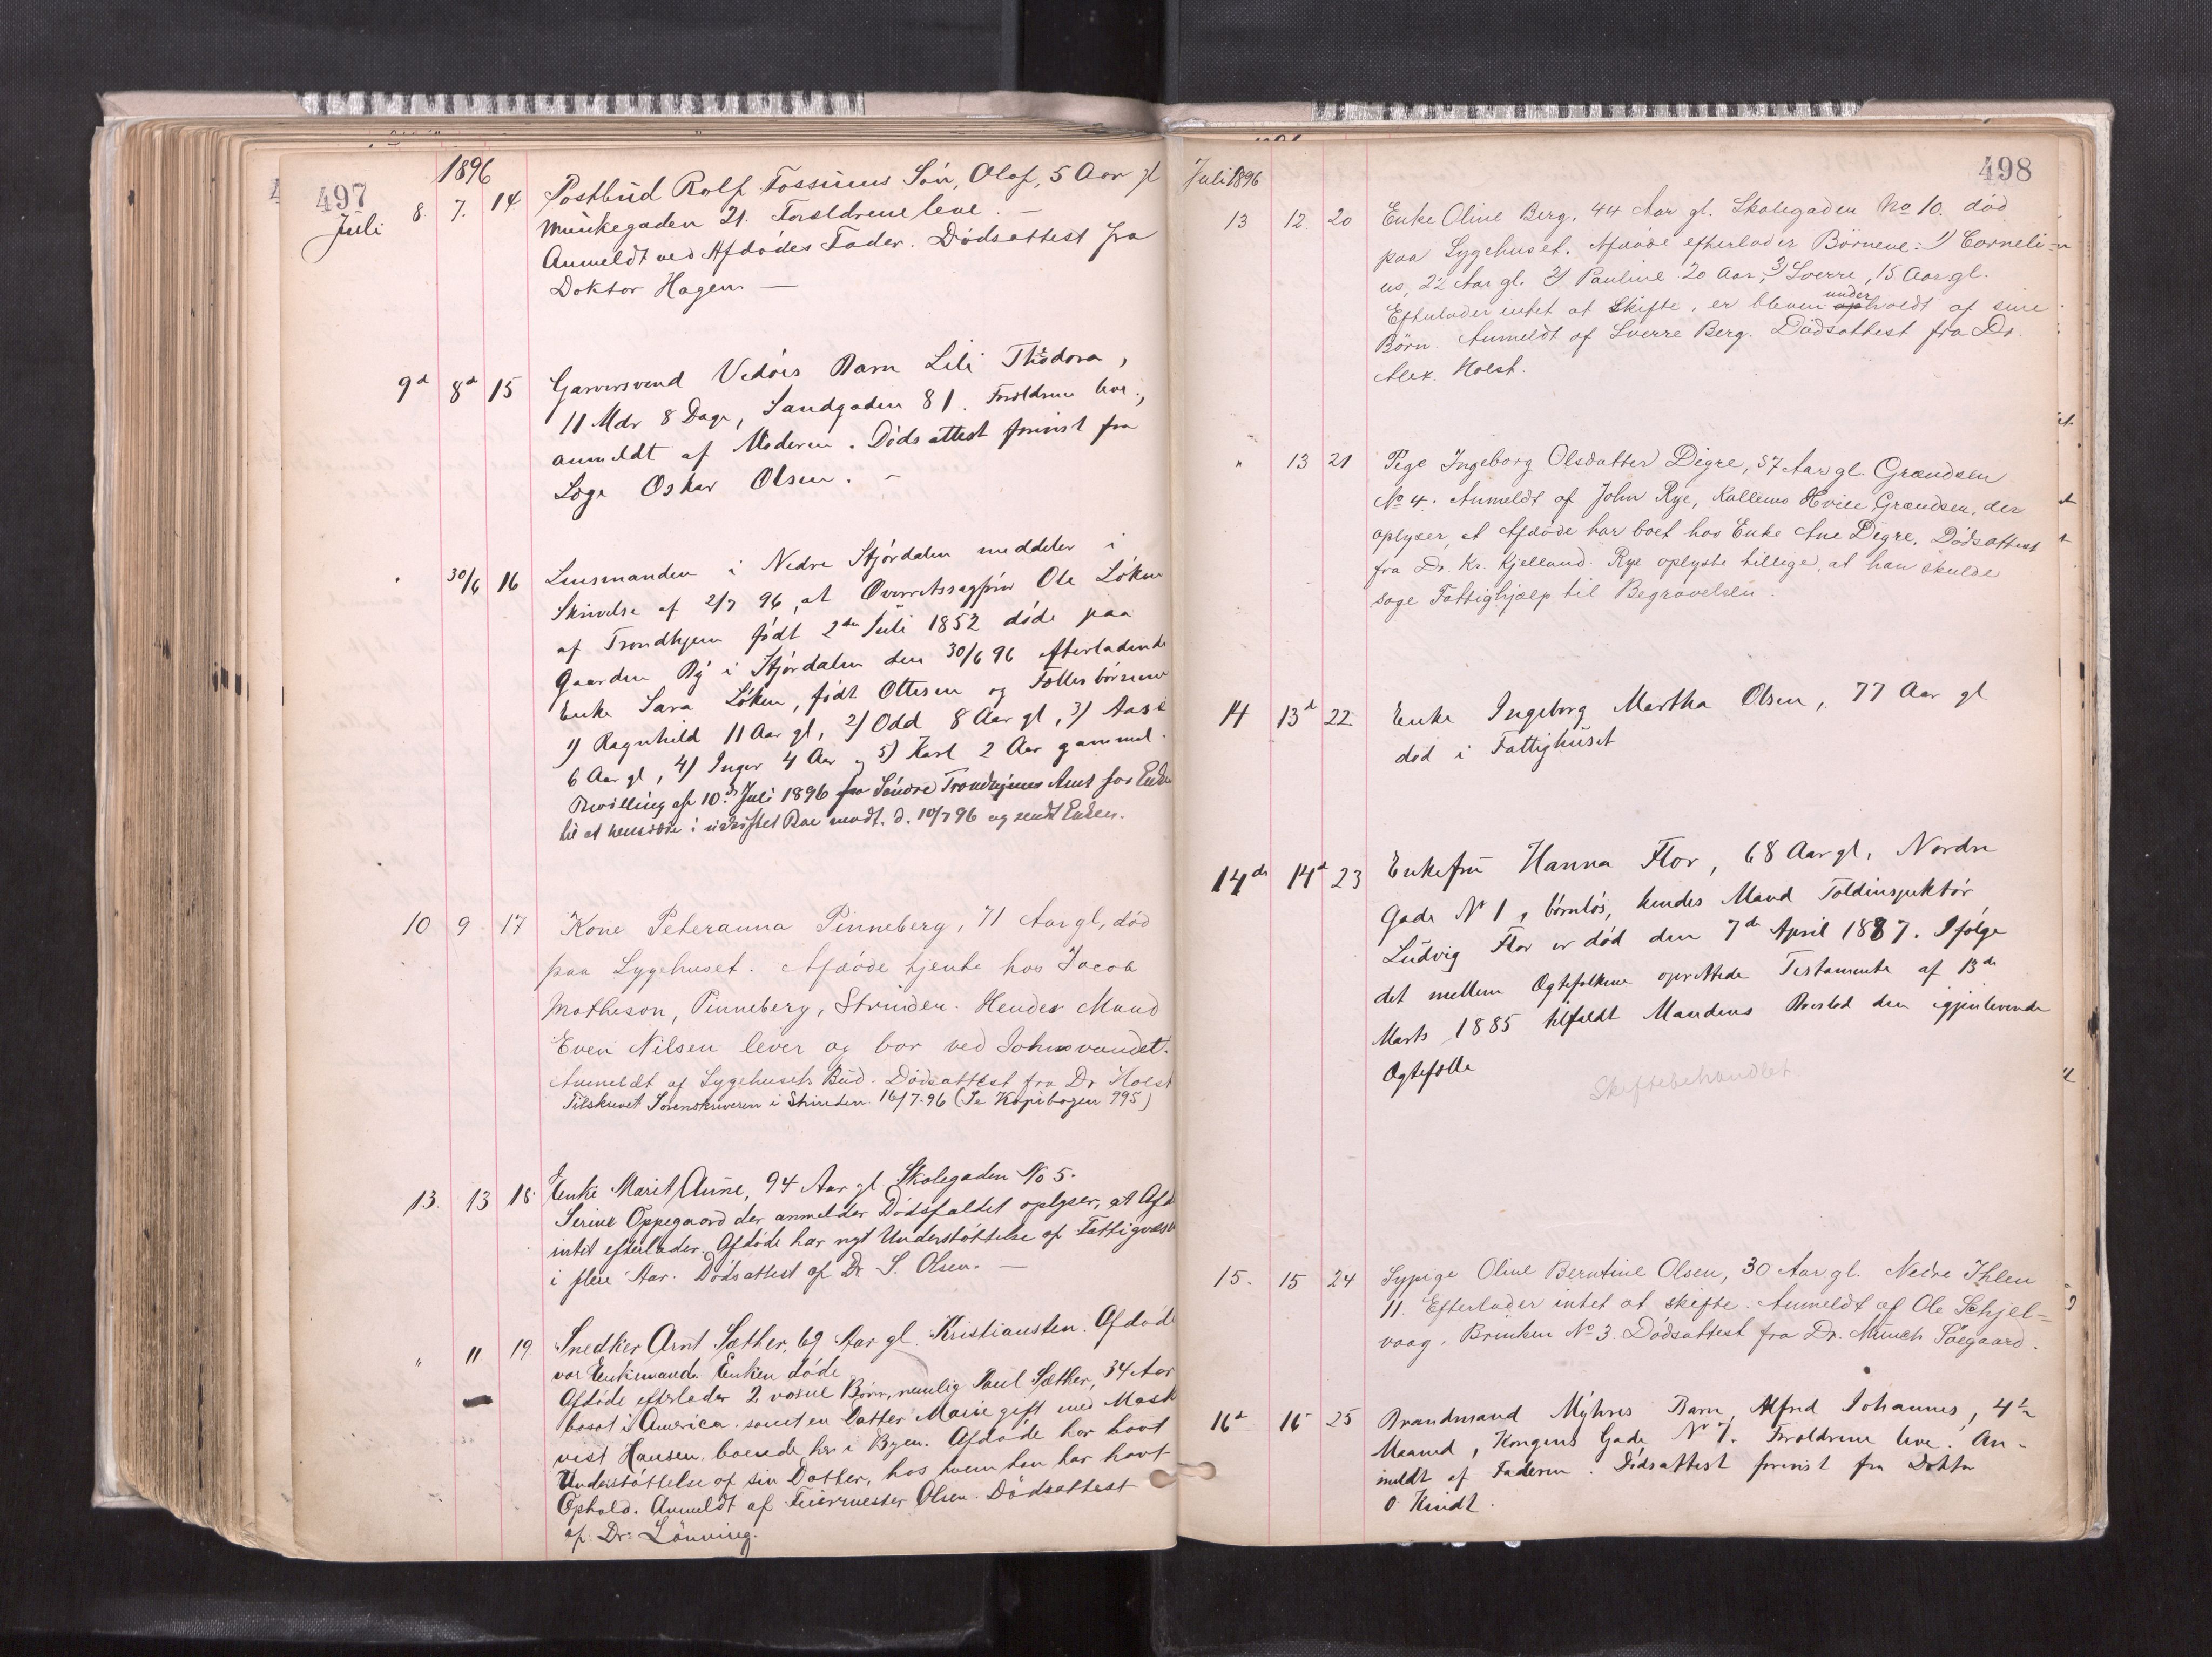 497
1896
Juli 8. 7. 14. Postbud Rolf Fossums Sön, Olaf, 5 Aar gl
Munkegaden 21. Forældrene leve. —
Anmeldt ved Afdødes Fader. Dödsattest fra
Doktor Hagen —
9d 8d 15 Garversvend Vedöes Barn Lili Theodora,
11 Mdr 8 Dage, Sandgaden 81. Forældrene leve.,
anmeldt af Moderen. Dödsattest forevist fra
Læge Oskar Olsen. —
30/6 16 Lensmanden i Nedre Stjördalen meddeler i
Skrivelse af 2/7 96, at Overretssagförer Ole Löken
af Trondhjem födt 2den Juli 1852 döde paa
Gaarden By i Stjördalen den 30/6 96 efterladende
Enke Sara Löken, födt Ottesen og Fællesbörnene
1) Ragnhild 11 Aar gl, 2) Odd 8 Aar gl, 3) Aase
6 Aar gl, 4) Inger 4 Aar og 5) Karl 2 Aar gammel.
Bevilling af 10de Juli 1896 fra Söndre Trondhjems Amt for Enken
til at hensidde i uskiftet Bo modt. d. 10/7 96 og sendt Enken.
10 9. 17 Kone Peteranna Pinneberg, 71 Aar gl, död
paa Sygehuset. Afdøde tjente hos Jacob
Matheson, Pinneberg, Strinden. Hendes Mand
Even Nilsen lever og bor ved Jonsvandet.
Anmeldt af Sygehusets Bud. Dødsattest fra Dr Holst
Tilskrevet Sorenskriveren i Strinden 16/7.96 (Se Kopibogen 995)
13. 13 18. Enke Marit Aune, 94 Aar gl Skolegaden No 5.
Serine Oppegaard der anmelder Dödsfaldet oplyser, at Afd
intet efterlader. Afdöde har nyt Understöttelse af Fattigvæs
i flere Aar. Dödsattest af Dr S. Olsen. —
" 11 19. Snedker Arnt Sæther, 69 Aar gl Kristiansten. Afdöde
var Enkemand. Enken döde
Afdöde efterlader 2 voxne Börn, nemlig Paul Sæther, 34 Aar
bosat i America samt en Datter Marie gift med Mask
vist Hansen boende her i Byen. Afdöde har havt
Understöttelse af sin Datter, hos hvem han har havt
Ophold. Anmeldt af Feiermester Olsen. Dödsattest
af Dr. Lönning.
498
Juli 1896
13 12 20 Enke Oline Berg, 44 Aar gl. Skolegaden No 10. død
paa Sygehuset. Afdøde efterlader Børnene: 1) Corneli-
us, 22 Aar gl. 2) Pauline 20 Aar, 3) Sverre, 15 Aar gl.
Efterlader intet at Skifte, er bleven underholdt af sine
Børn. Anmeldt af Sverre Berg. Dødsattest fra Dr.
Alex. Holst.
" 13 21 Pige Ingeborg Olsdatter Digre, 57 Aar gl. Grændsen
No 4. Anmeldt af John Rye, Kallems Hvile Grændsen, der
oplyser, at Afdøde har boet hos Enke Ane Digre. Dødsattest
fra Dr. Kr. Kjelland. Rye oplyste tillige, at han skulde
søge Fattighjælp til Begravelsen.
14 13d 22 Enke Ingeborg Martha Olsen, 77 Aar gl
død i Fattighuset
14de 14d 23 Enkefru Hanna Flor, 68 Aar gl, Nordre
Gade No 1, börnlös, hendes Mand Toldinspektör
Ludvig Flor er död den 7de April 1887. Ifölge
det mellem Ægtefolkene oprettede Testamente af 13de
Marts 1885 tilfaldt Mandens Bolod den igjenlevende
Ægtefælle
Skiftebehandlet.
15. 15 24 Sypige Oline Berntine Olsen, 30 Aar gl. Nedre Ihlen
11. Efterlader intet at skifte. Anmeldt af Ole Schjel-
vaag, Brinken No 3. Dødsattest fra Dr. Munch Søegaard.
16d 16 25 Brandmand Myhres Barn, Alfred Johannes, 4 1/2
Maaned, Kongens Gade No 7. Forældrene leve. An-
meldt af Faderen. Dödsattest forevist fra Doktor
O Kindt.